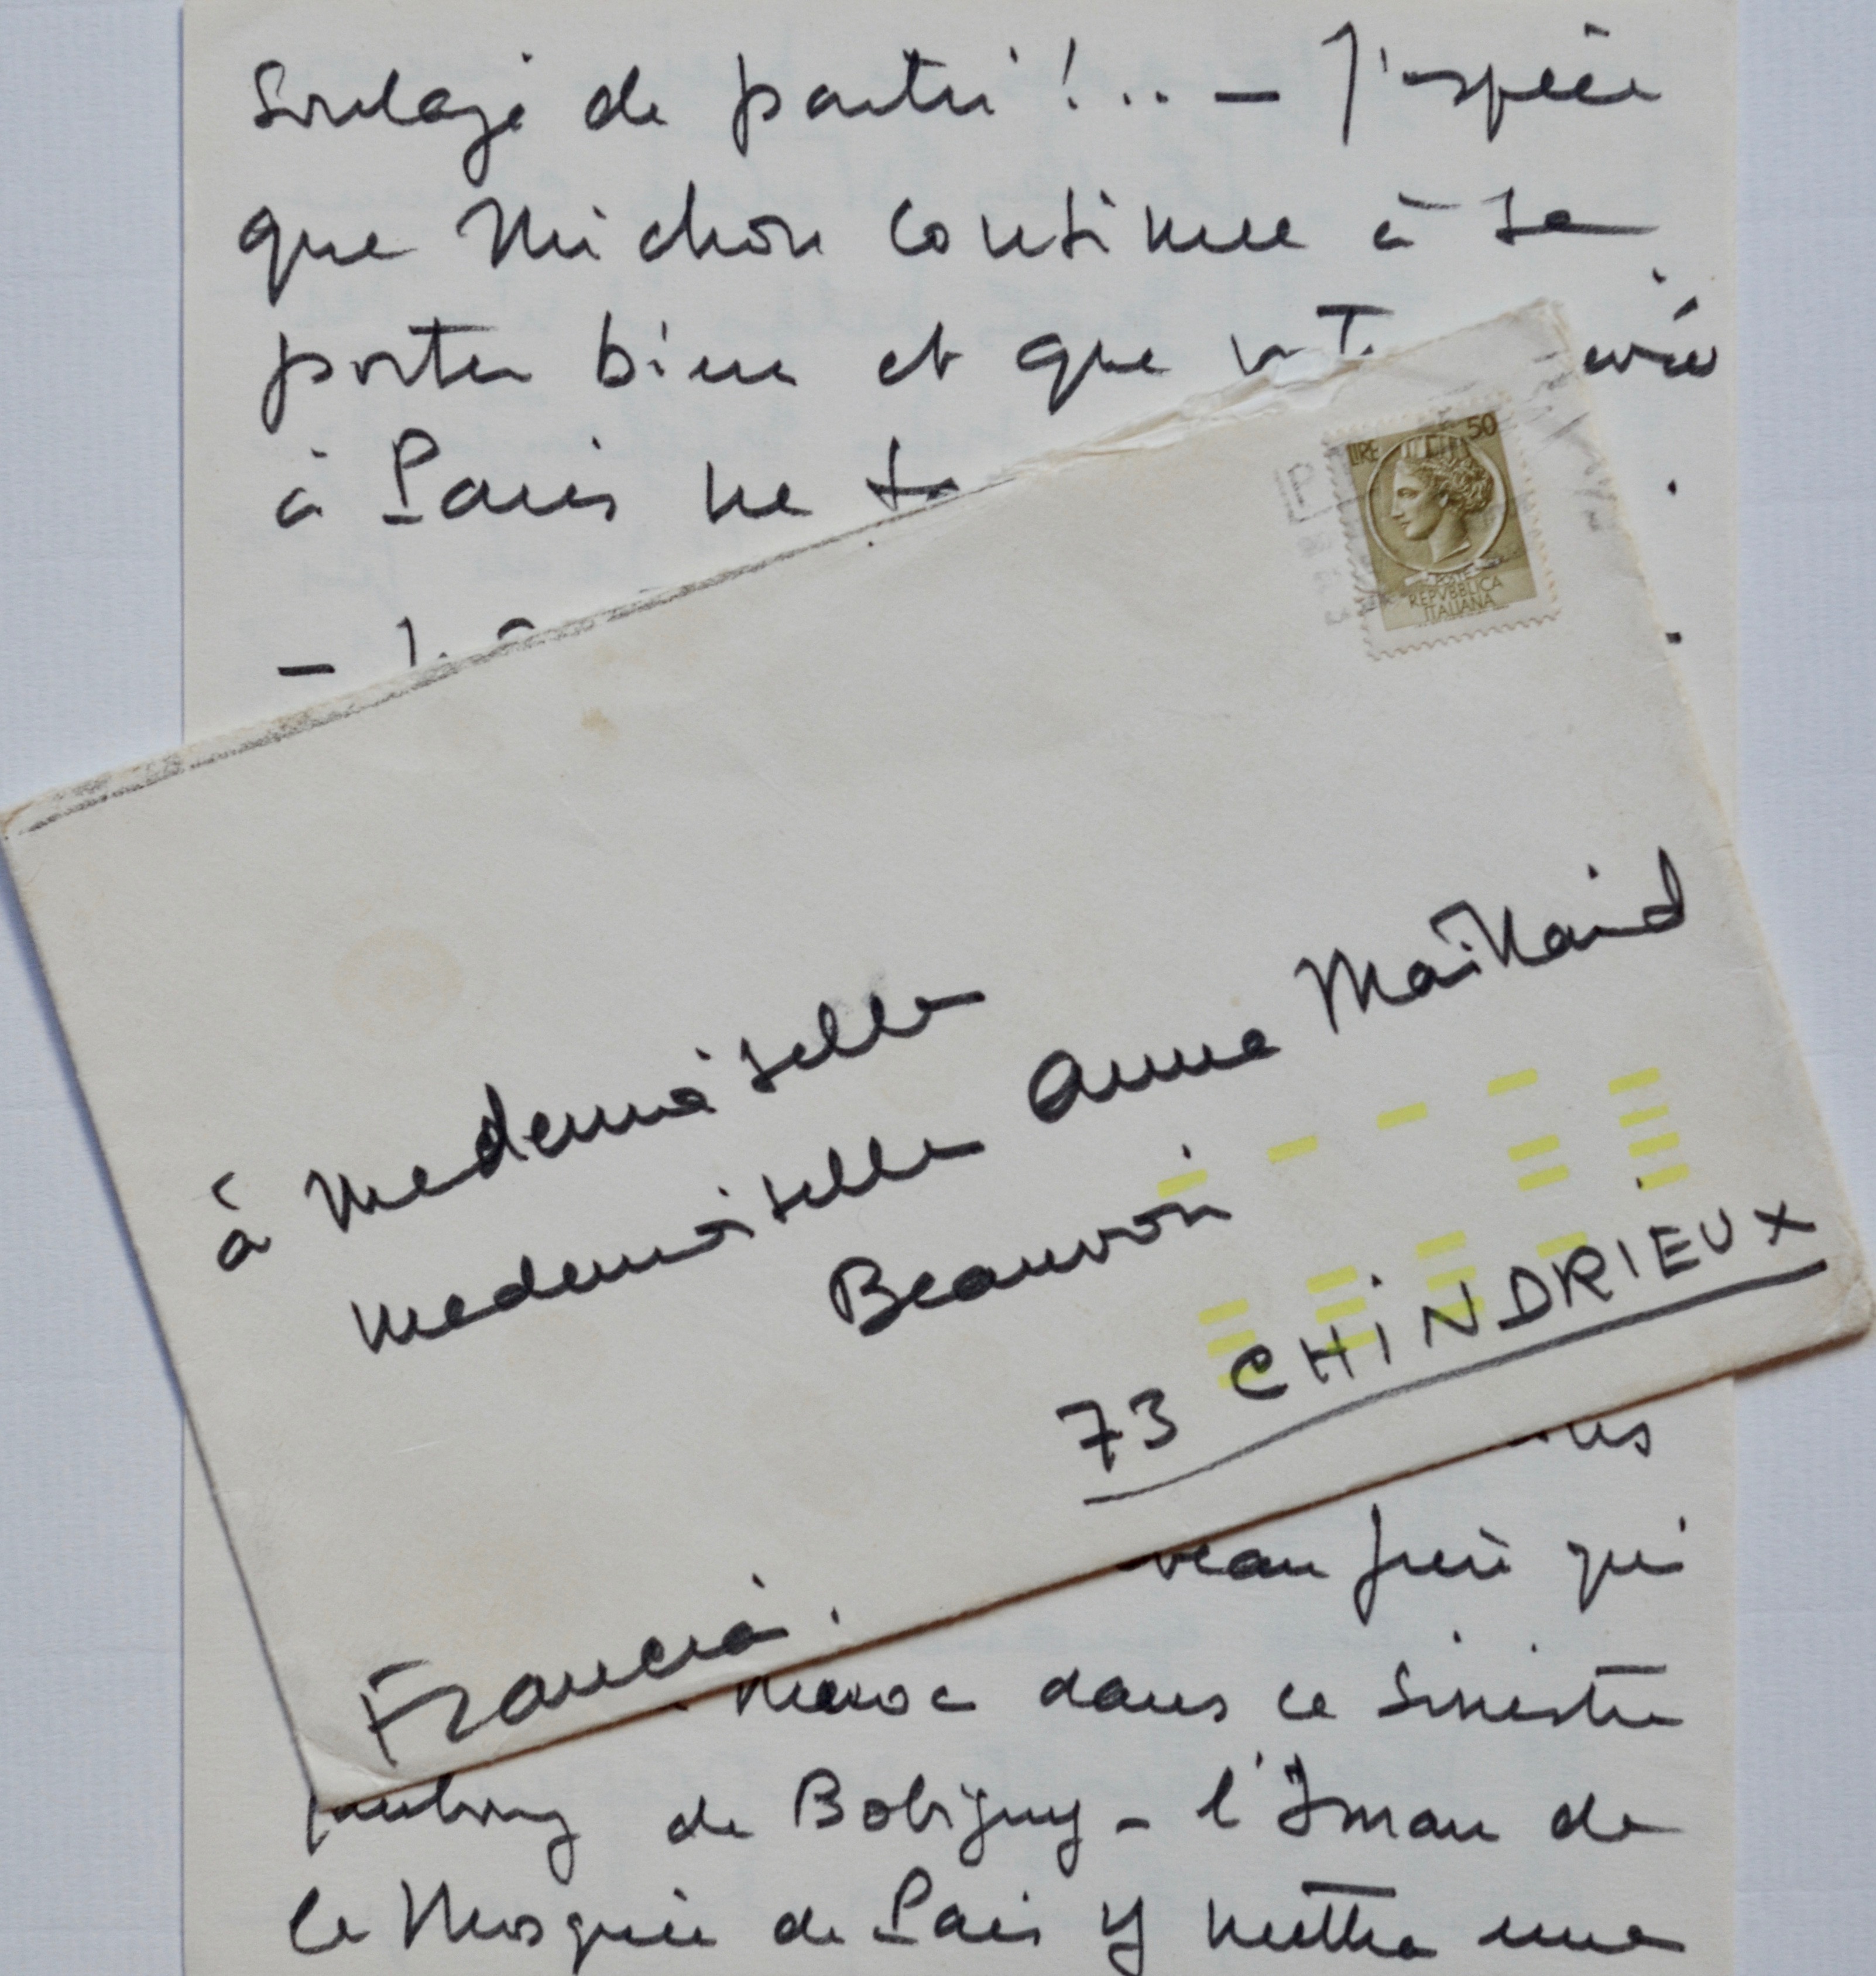 Soulagé de partir !.. — J'espère
que Michon continue à se
porter bien et que
à Paris ne
LIRE 50
POSTE
REPVBBLICA
ITALIANA
à Mademoiselle
Mademoiselle Anne Maillard
Beauvoir
73 CHiNDRIEUX
Francia.
frère qui
Maroc dans ce Sinistre
faubourg de Bobigny - l'Iman de
la Mosquée de Paris y mettra une